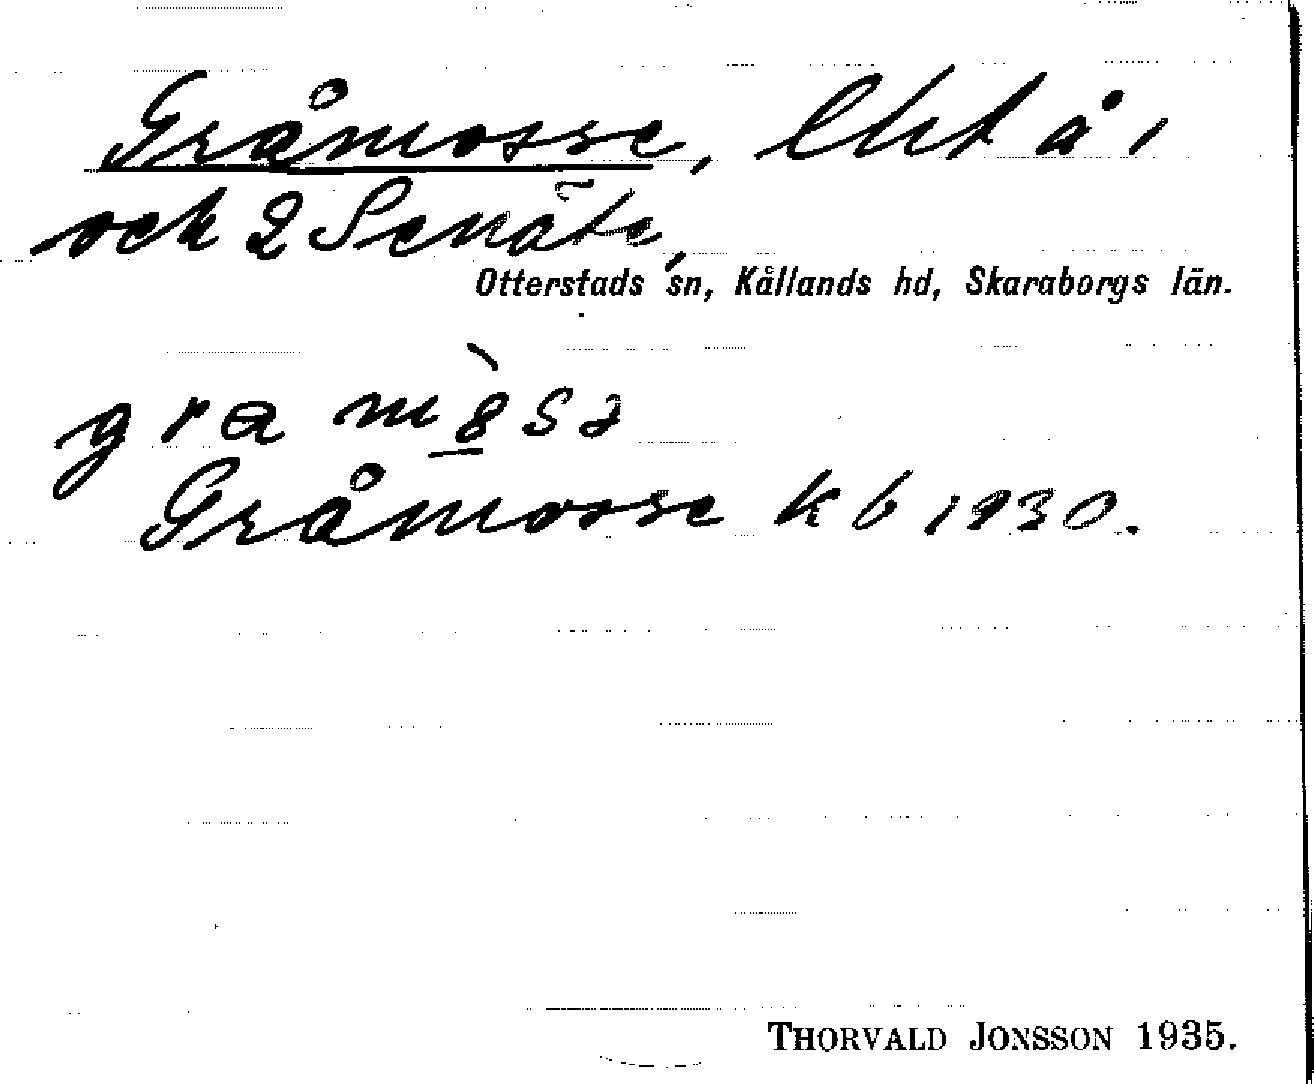 Gråmosse, lht å 1
och 2 Senäte,
Otterstads sn, Kållands hd, Skaraborgs län.
Gråmosse kb 1930.
THORVALD JONSSON 1935.